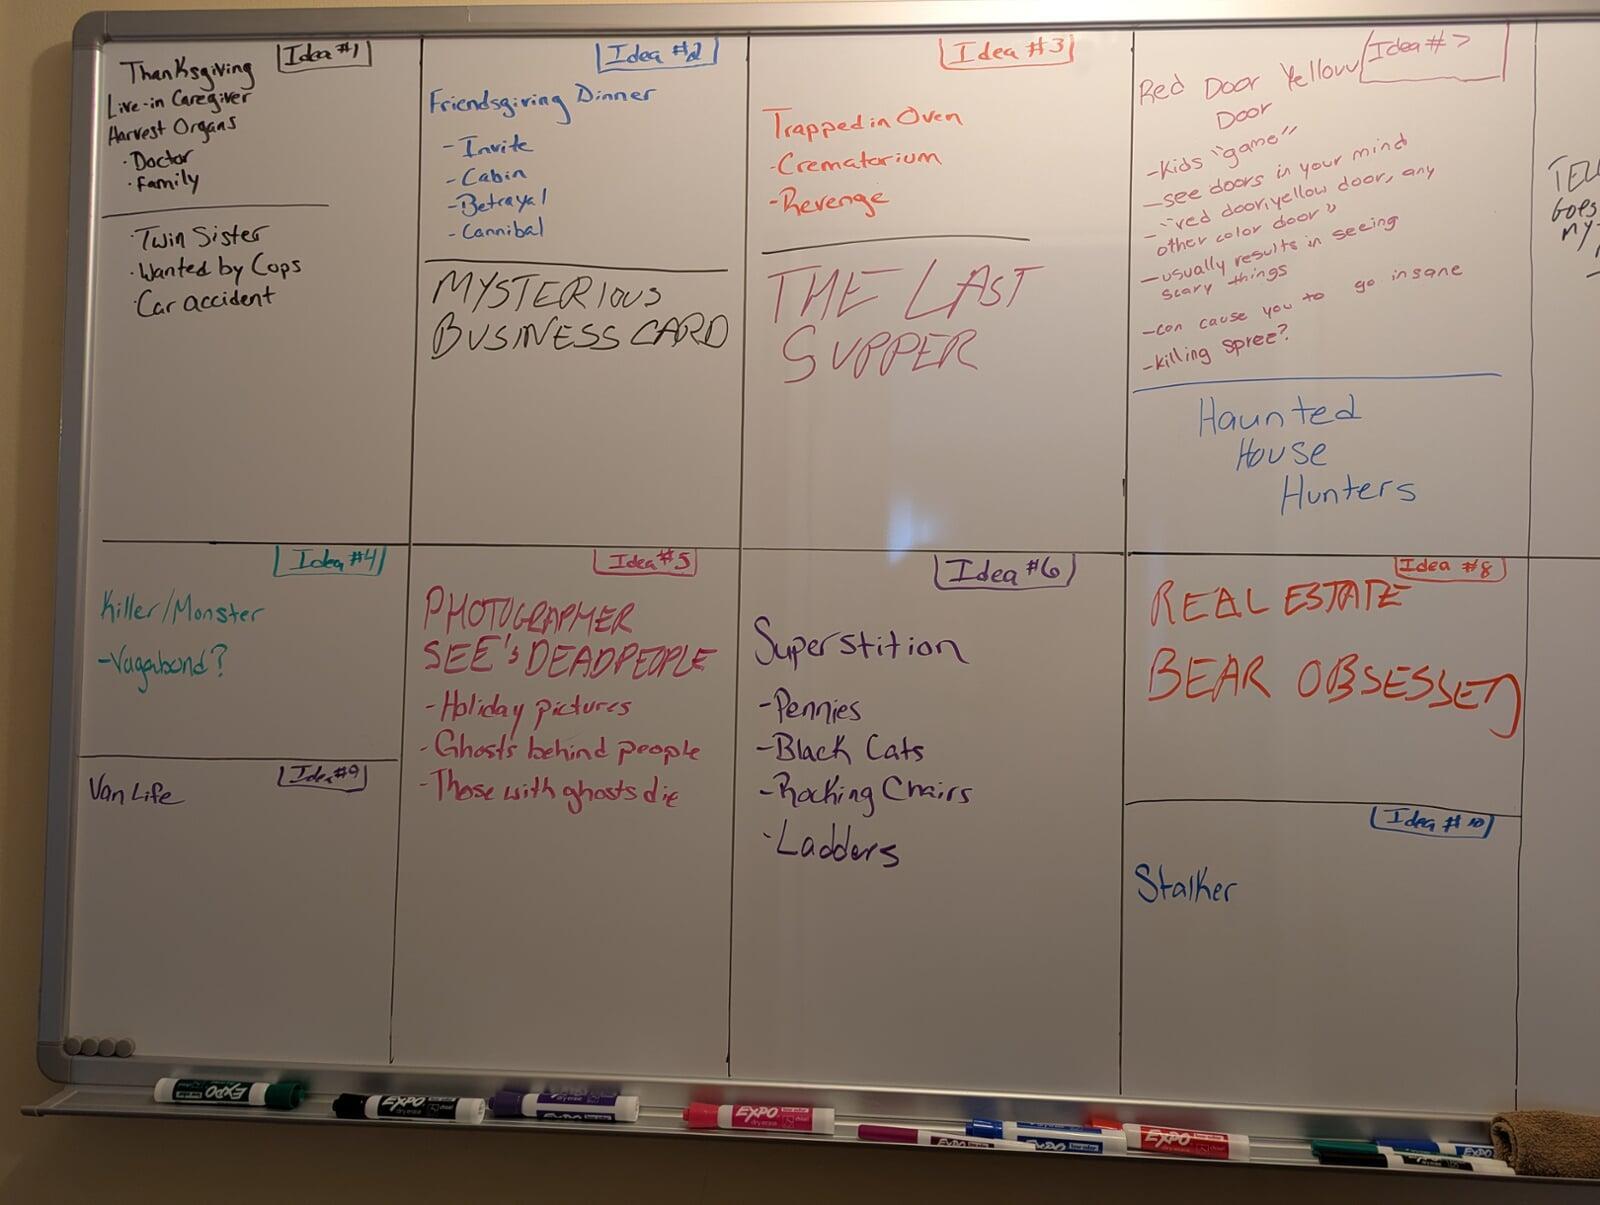 Idea #1
Thanksgiving
Live-in Caregiver
Harvest Organs
· Doctor
· Family
· Twin Sister
· Wanted by Cops
· Car accident
Idea #2
Friendsgiving Dinner
- Invite
- Cabin
- Betrayal
- Cannibal
MYSTERIOUS
BUSINESS CARD
Idea #3
Trapped in Oven
- Crematorium
- Revenge
THE LAST
SUPPER
Idea # 7
Red Door Yellow
Door
- Kids "game"
- see doors in your mind
- "red door, yellow door, any
other color door"
- usually results in seeing
scary things
- can cause you to go insane
- killing spree?
Haunted
House
Hunters
Idea #4
Killer/Monster
- Vagabond?
Idea #9
Van Life
Idea #5
PHOTOGRAPHER
SEE's DEAD PEOPLE
- Holiday pictures
- Ghosts behind people
- Those with ghosts die
Idea #6
Superstition
- Pennies
- Black Cats
- Rocking Chairs
- Ladders
Idea #8
REAL ESTATE
BEAR OBSESSED
Idea # 10
Stalker
EXPO
EXPO
EXPO
EXPO
EXPO
EXPO
EXPO
EXPO